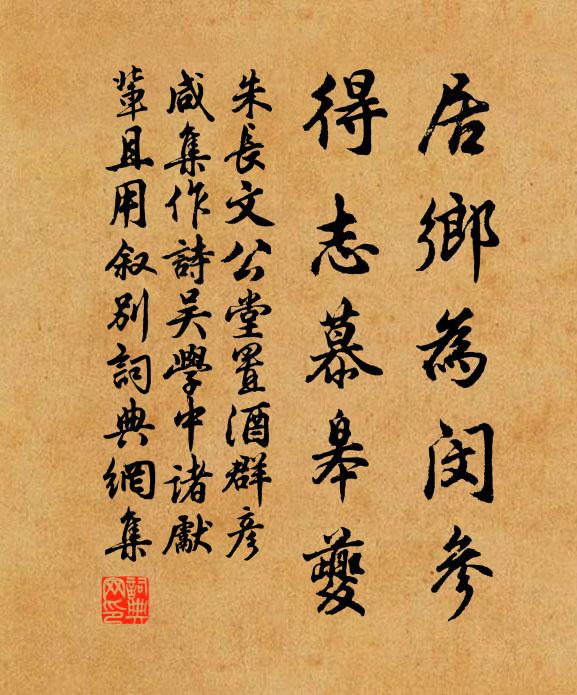 居鄉為閔參
得志慕皋夔
朱長文公堂置酒群彥
咸集作詩吳學中諸獻
輩且用叙別詞典網集
詞典网印